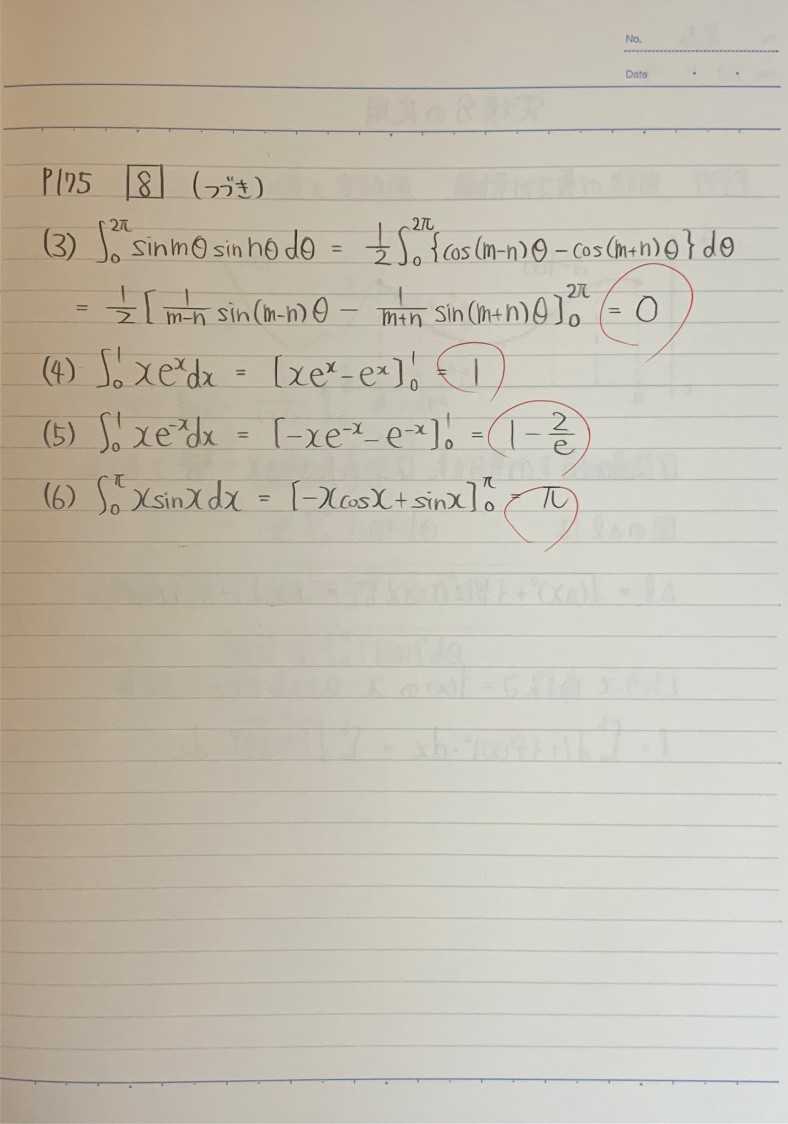 No.
Date
P175 8 (つづき)
(3) ∫₀^2π sinmθ sinnθ dθ = 1/2 ∫₀^2π {cos(m-n)θ - cos(m+n)θ} dθ
= 1/2 [1/(m-n) sin(m-n)θ - 1/(m+n) sin(m+n)θ]₀^2π = 0
(4) ∫₀^1 xe^x dx = [xe^x - e^x]₀^1 = 1
(5) ∫₀^1 xe^-x dx = [-xe^-x - e^-x]₀^1 = 1 - 2/e
(6) ∫₀^π x sinx dx = [-x cosx + sinx]₀^π = π